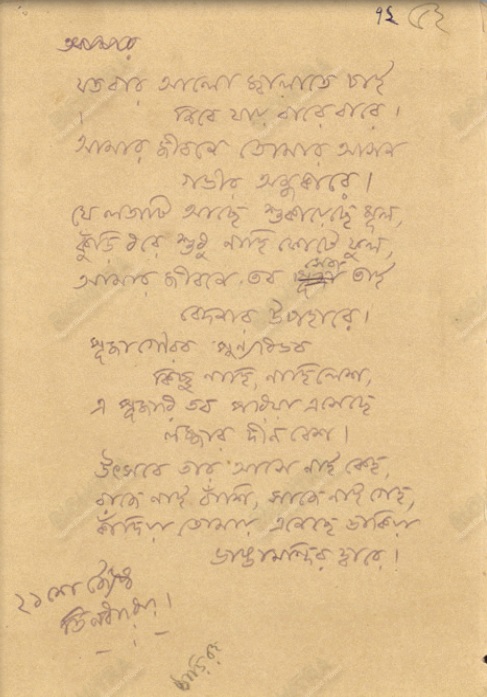 ৭২ ৫২
যতবার আলো জ্বালাতে চাই
নিবে যায় বারে বারে।
আমার জীবনে তোমার আসন
গভীর অন্ধকারে।
যে লতাটি আছে শুকায়েছে মূল,
কুঁড়ি ধরে শুধু নাহি ফোটে ফুল,
আমার জীবনে তব সেবা তাই
বেদনার উপহারে।
পূজাগৌরব পুণ্যবিভব
কিছু নাহি, নাহি লেশ,
এ পূজারি তব পরিয়া এসেছে
লজ্জার দীন বেশ।
উৎসবে তার আসে নাই কেহ,
বাজে নাই বাঁশি, সাজে নাই গেহ,
কাঁদিয়া তোমায় এনেছে ডাকিয়া
ভাঙামন্দির দ্বারে।
২১শে জ্যৈষ্ঠ
তিনধরিয়া।